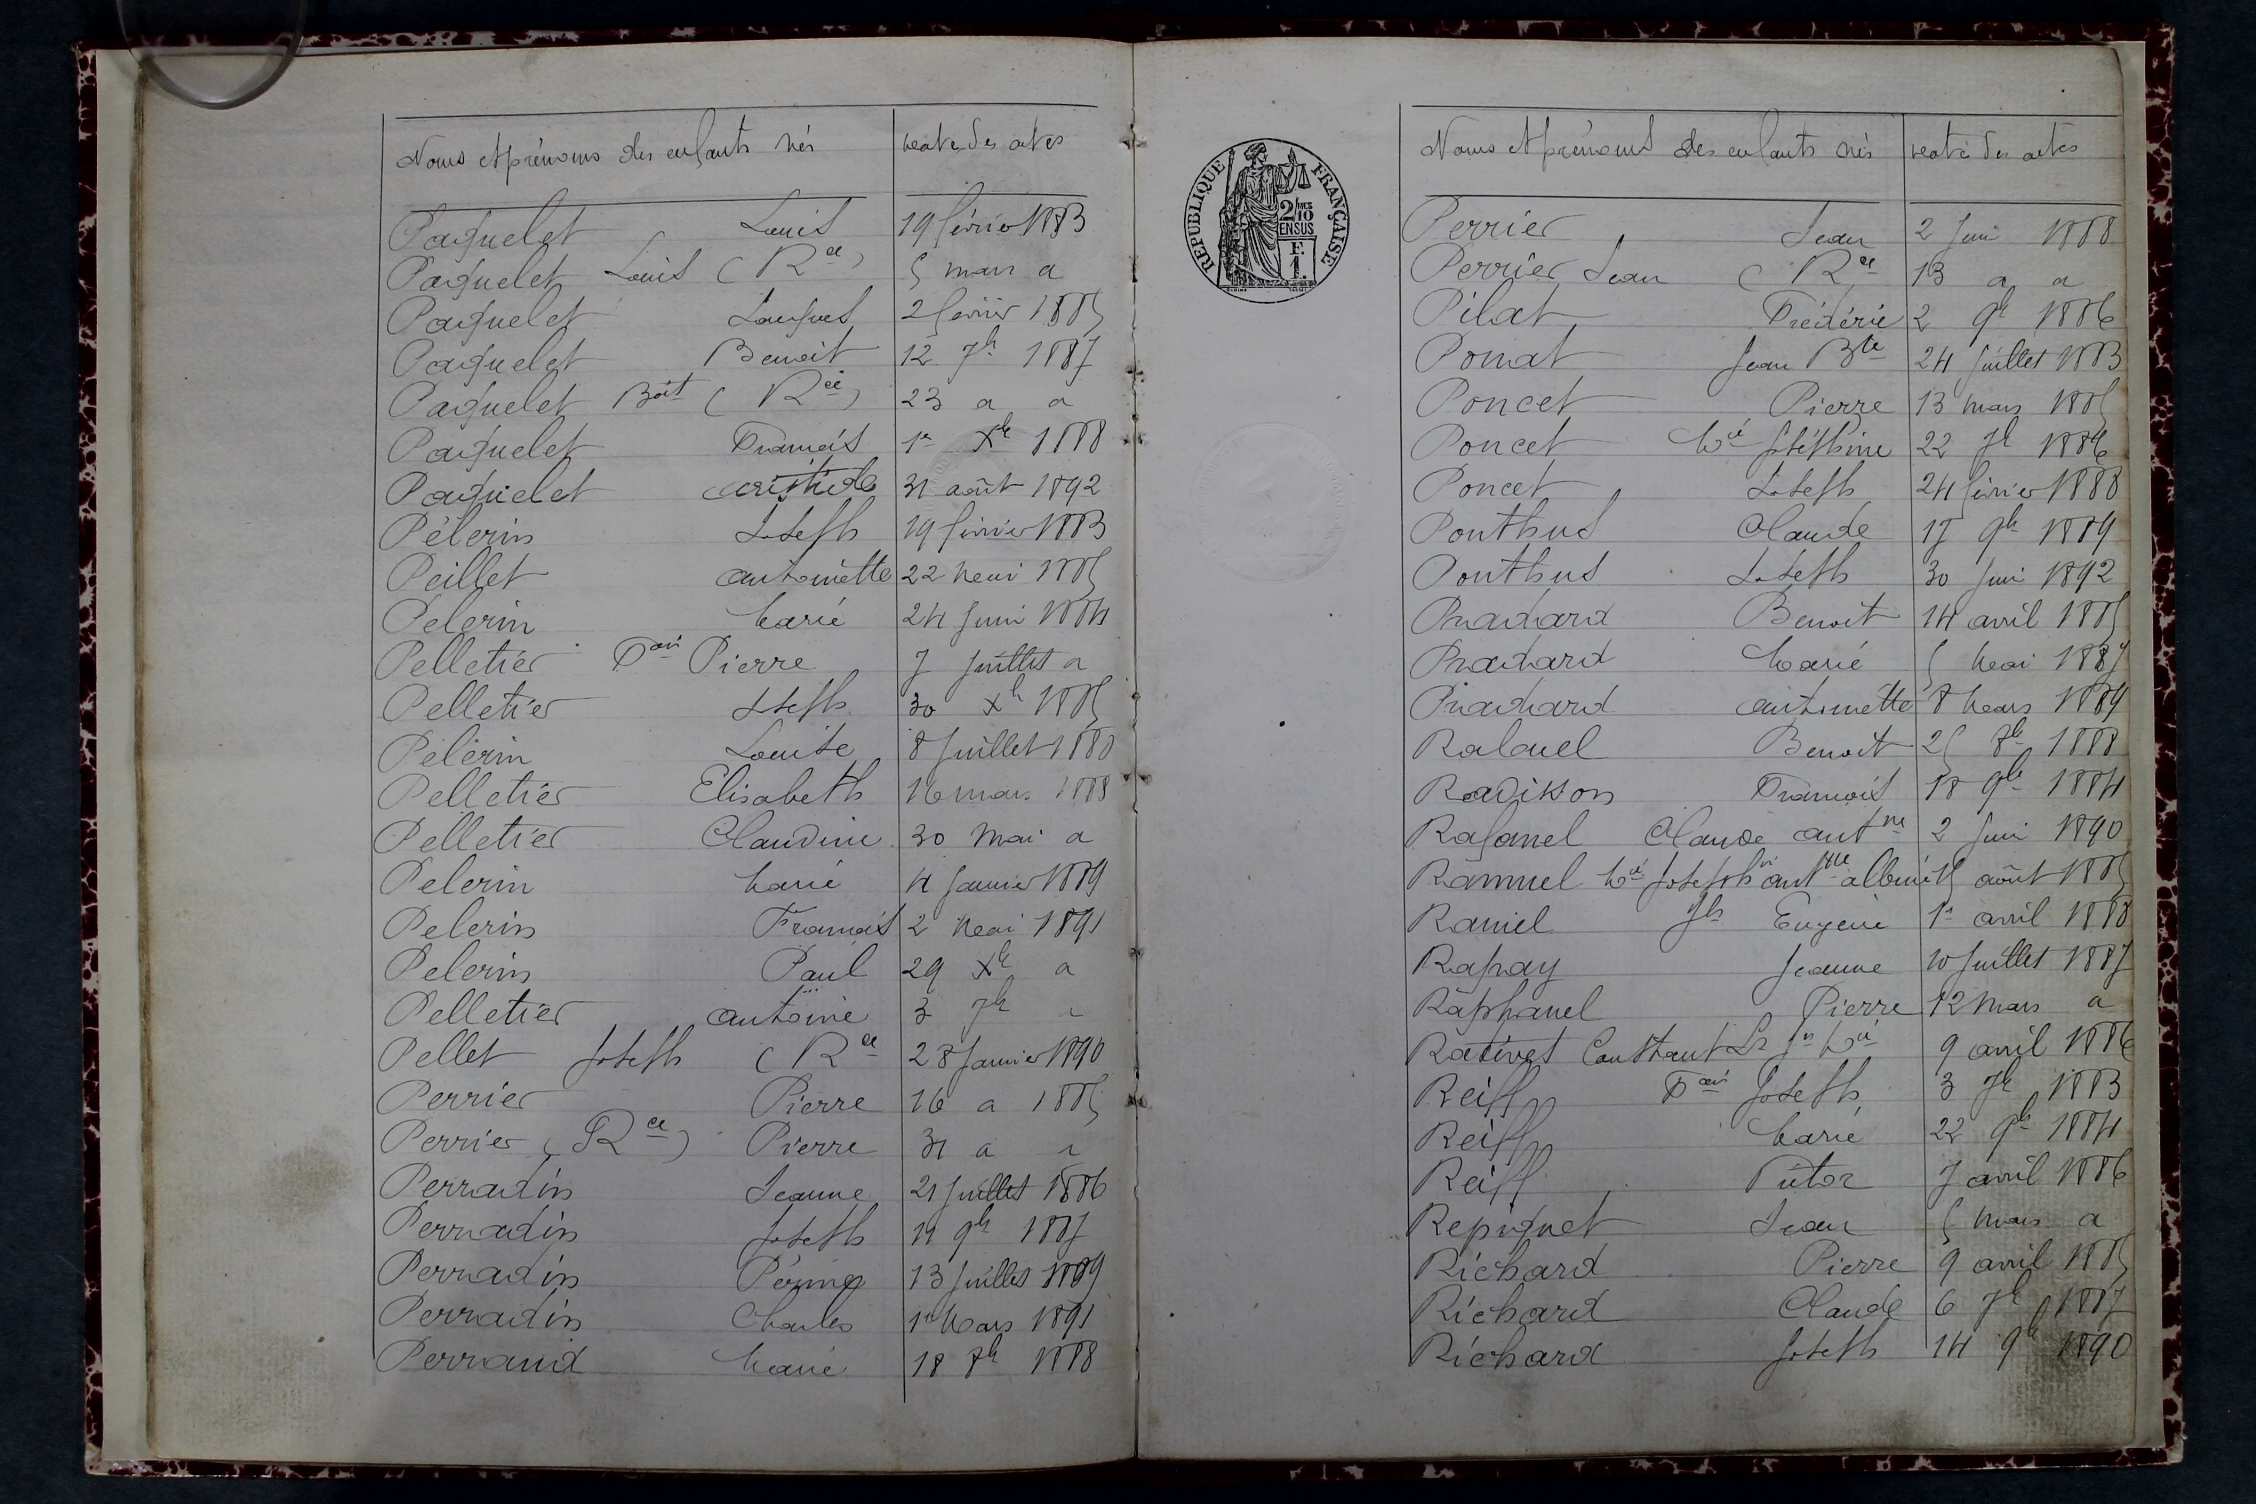 Noms et prénoms des enfants nés Date des actes
Paquelet Louis 19 février 1883
Paquelet Louis (Rce) 5 mars a
Paquelet Jacques 2 février 1885
Paquelet Benoit 12 7b 1887
Paquelet Boit (Rce) 23 a a
Paquelet François 1er Xb 1888
Paquelet aristide 31 août 1892
Pélerin Joseph 19 février 1883
Peillet antoinette 22 Mai 1885
Pelerin Marie 24 Juin 1884
Pelletier Fois Pierre 7 Juillet a
Pelletier Joseph 30 Xb 1885
Pelerin Louise 8 Juillet 1880
Pelletier Elisabeth 16 mars 1888
Pelletier Claudine 30 Mai a
Pelerin Marie 4 Janvier 1889
Pelerin François 2 Mai 1891
Pelerin Paul 29 Xb a
Pelletier antoine 3 7b a
Pellet Joseph (Rce 28 Janvier 1890
Perrier Pierre 16 a 1885
Perrier (Rce) Pierre 31 a a
Perradin Jeanne 21 Juillet 1886
Perradin Joseph 11 9b 1887
Perradin 13 Juillet 1889
Perradin Charles 1er Mars 1891
Perraud Marie 18 8b 1888
REPUBLIQUE FRANÇAISE
2/10
EN SUS
F.
1.
Noms et prénoms des enfants nés Date des actes
Perrier Jean 2 Juin 1888
Perrier Jean (Rce 13 a a
Pilat Frédéric 2 9b 1886
Ponat Jean Bte 24 Juillet 1883
Poncet Pierre 13 mars 1885
Poncet Mie Joséphine 22 7b 1886
Poncet Joseph 24 février 1888
Ponthus Claude 17 9b 1889
Ponthus Joseph 30 Juin 1892
Prachard Benoit 14 avril 1885
Prachard Marie 5 Mai 1887
Prachard antoinette 8 Mars 1889
Benoit 25 8b 1888
Radisson François 18 9b 1884
Rafanel Claude antne 2 Juin 1890
Ramuel Mie Josephine antte albine 15 août 1885
Ramel Jh Eugene 1er avril 1888
Rapay Jeanne 10 Juillet 1887
Raphanel Pierre 12 Mars a
Rativet Constant Ls Jn Mie 9 avril 1886
Reiff Fois Joseph 3 7b 1883
Reiff Marie 22 9b 1884
Reiff Victor 7 avril 1886
Repiquet Jean 5 Mars a
Richard Pierre 9 avril 1885
Richard Claude 6 7b 1887
Richard Joseph 14 9b 1890